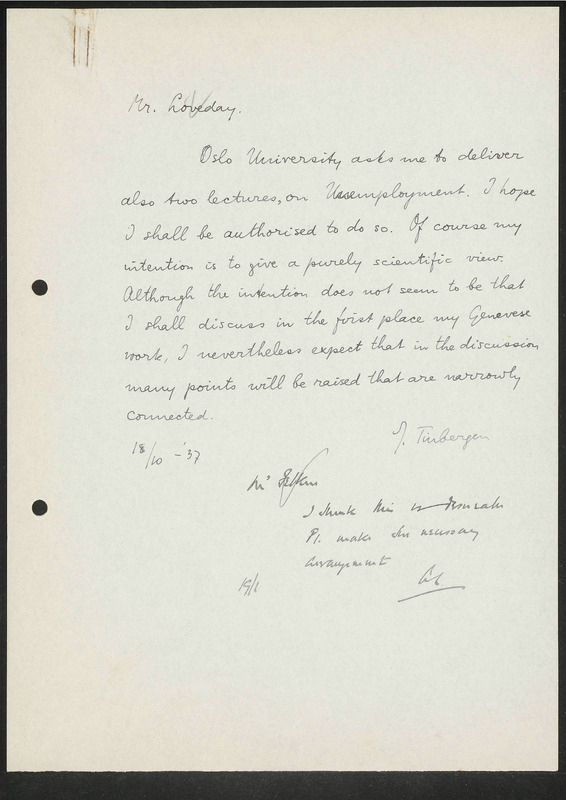 Mr. Loveday.
Oslo University asks me to deliver
also two lectures, on Unemployment. I hope
I shall be authorised to do so. Of course my
intention is to give a purely scientific view.
Although the intention does not seem to be that
I shall discuss in the first place my Genevese
work, I nevertheless expect that in the discussion
many points will be raised that are narrowly
connected.
J. Tinbergen
18/10 - '37
Mr
I think this is desirable
Pl. make the necessary
arrangement
AL